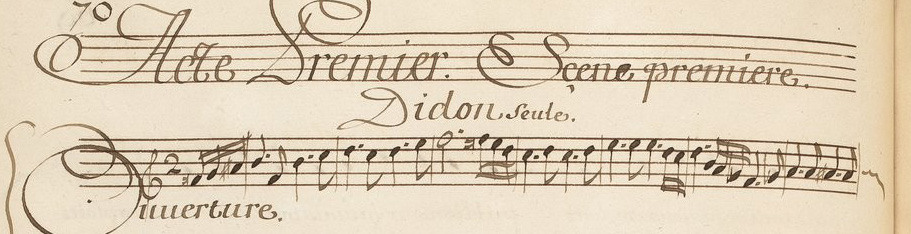 70
Acte Premier. Scene premiere.
Didon seule.
Ouuerture.